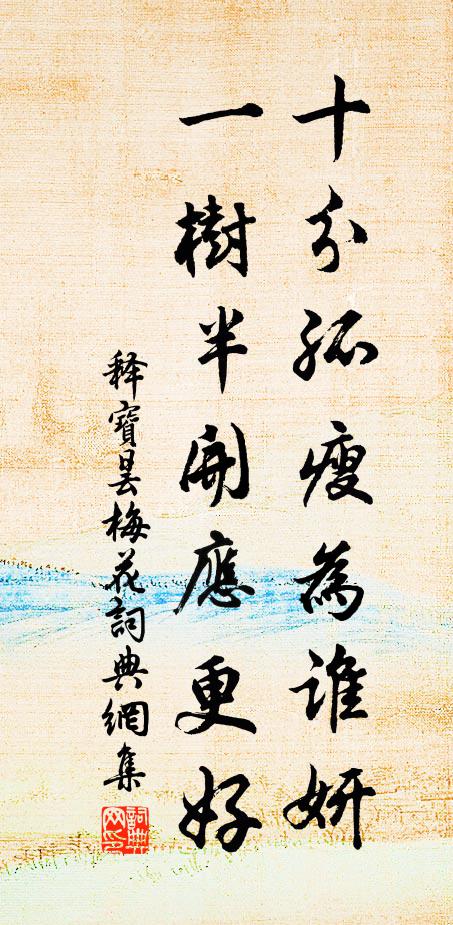 十分孤瘦為誰妍
一樹半開應更好
释寶曇梅花詞典網集
詞典网